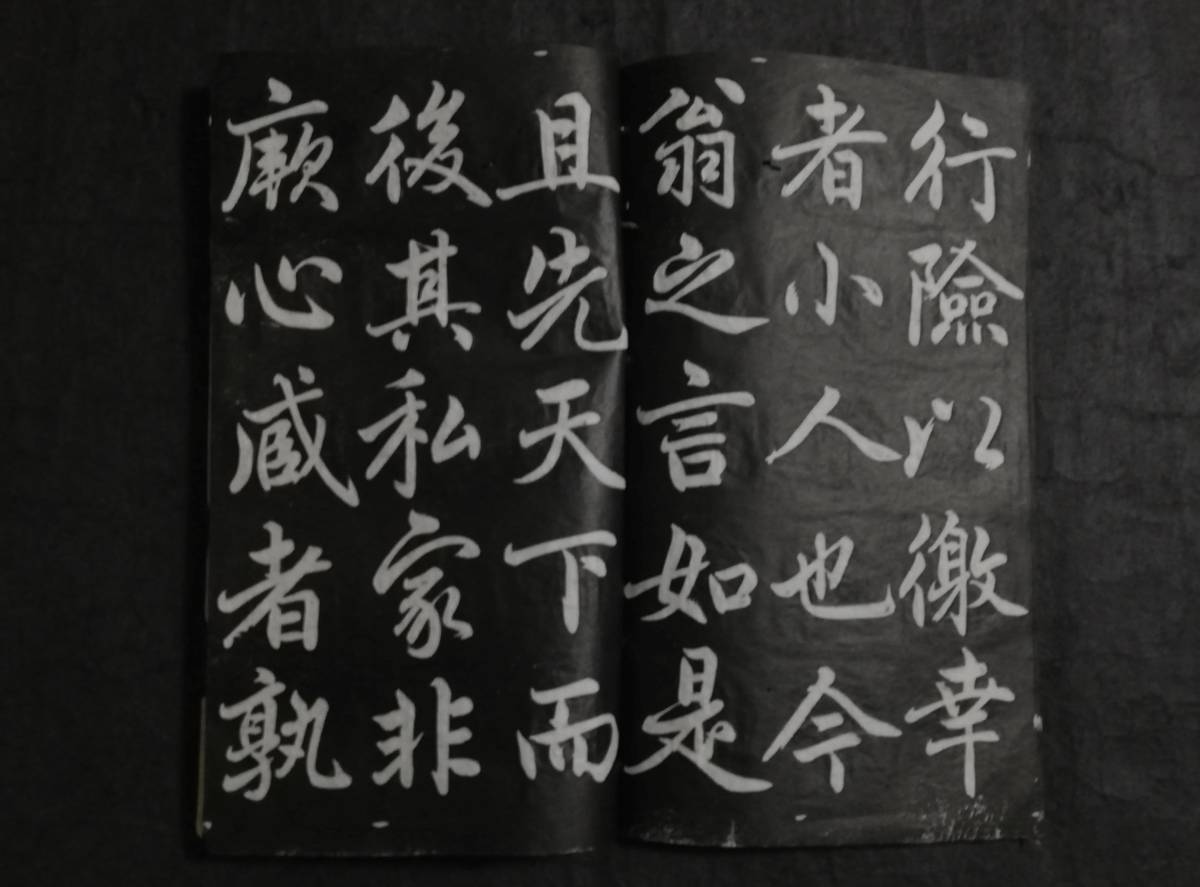 行險以徼幸
者小人也今
翁之言如是
且先天下而
後其私家非
厥心臧者孰